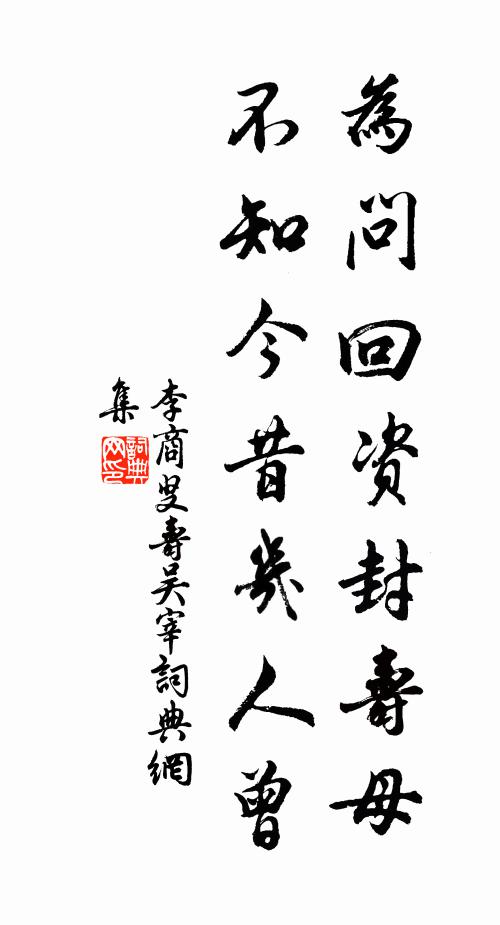 為問回資封壽母
不知今昔幾人曾
李商叟壽吳宰詞典網
集
詞典
网印